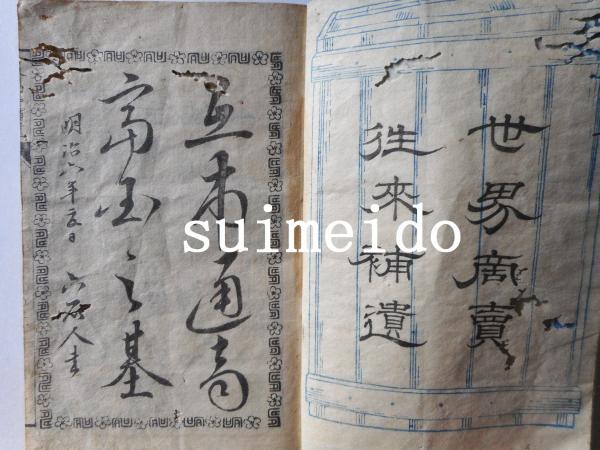 世界商賣
往來補遺
互市通商
富国之基
明治六年五月
suimeido